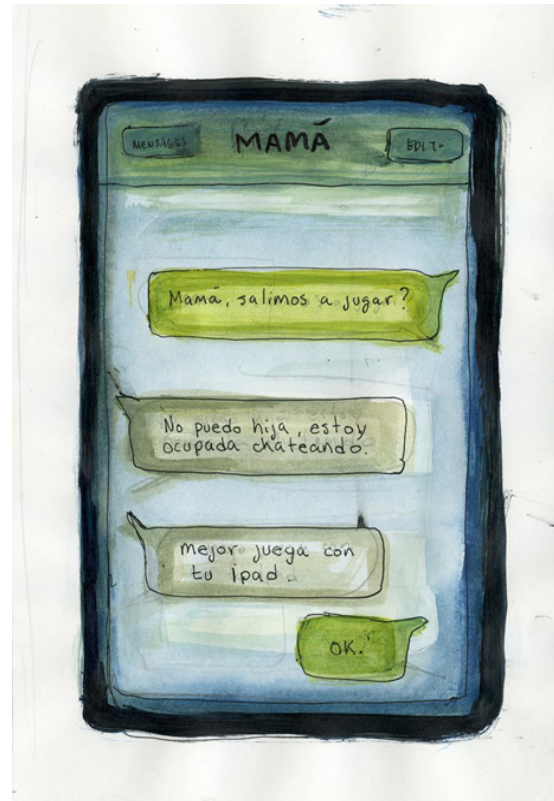 MENSAGES
MAMÁ
EDIT
Mamá, salimos a jugar?
No puedo hija, estoy
ocupada chateando.
mejor juega con
tu ipad.
OK.